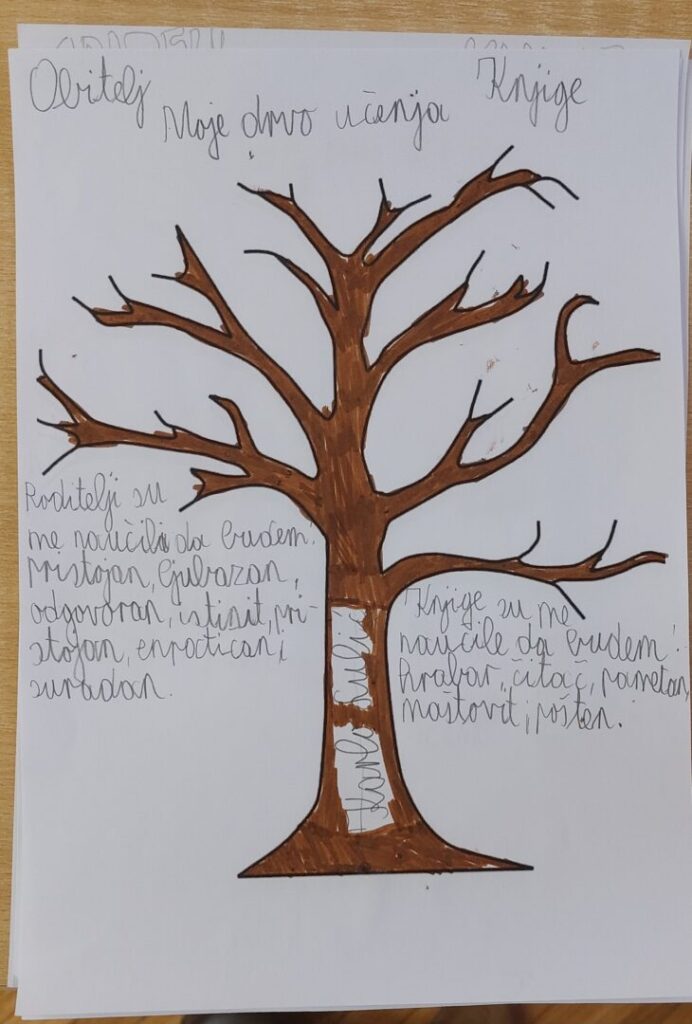 Obitelj
Moje drvo učenja
Knjige
Roditelji su
me naučili da budem:
pristojan, ljubazan,
odgovoran, istinit, pri-
stojan, enpatican i
suradan.
Knjige su me
naučile da budem:
hrabar, čitač, pametan,
maštovit, pošten.
Karlo